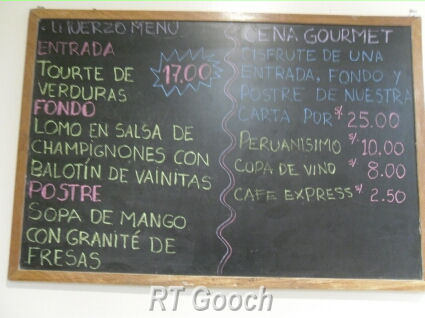 ALMUERZO MENU
ENTRADA
TOURTE DE
VERDURAS
17.00
FONDO
LOMO EN SALSA DE
CHAMPIGNONES CON
BALOTÍN DE VAINITAS
POSTRE
SOPA DE MANGO
CON GRANITÉ DE
FRESAS
CENA GOURMET
DISFRUTE DE UNA
ENTRADA, FONDO Y
POSTRE DE NUESTRA
CARTA POR S/ 25.00
PERUANISIMO S/ 10.00
COPA DE VINO S/ 8.00
CAFE EXPRESS S/ 2.50
RT Gooch